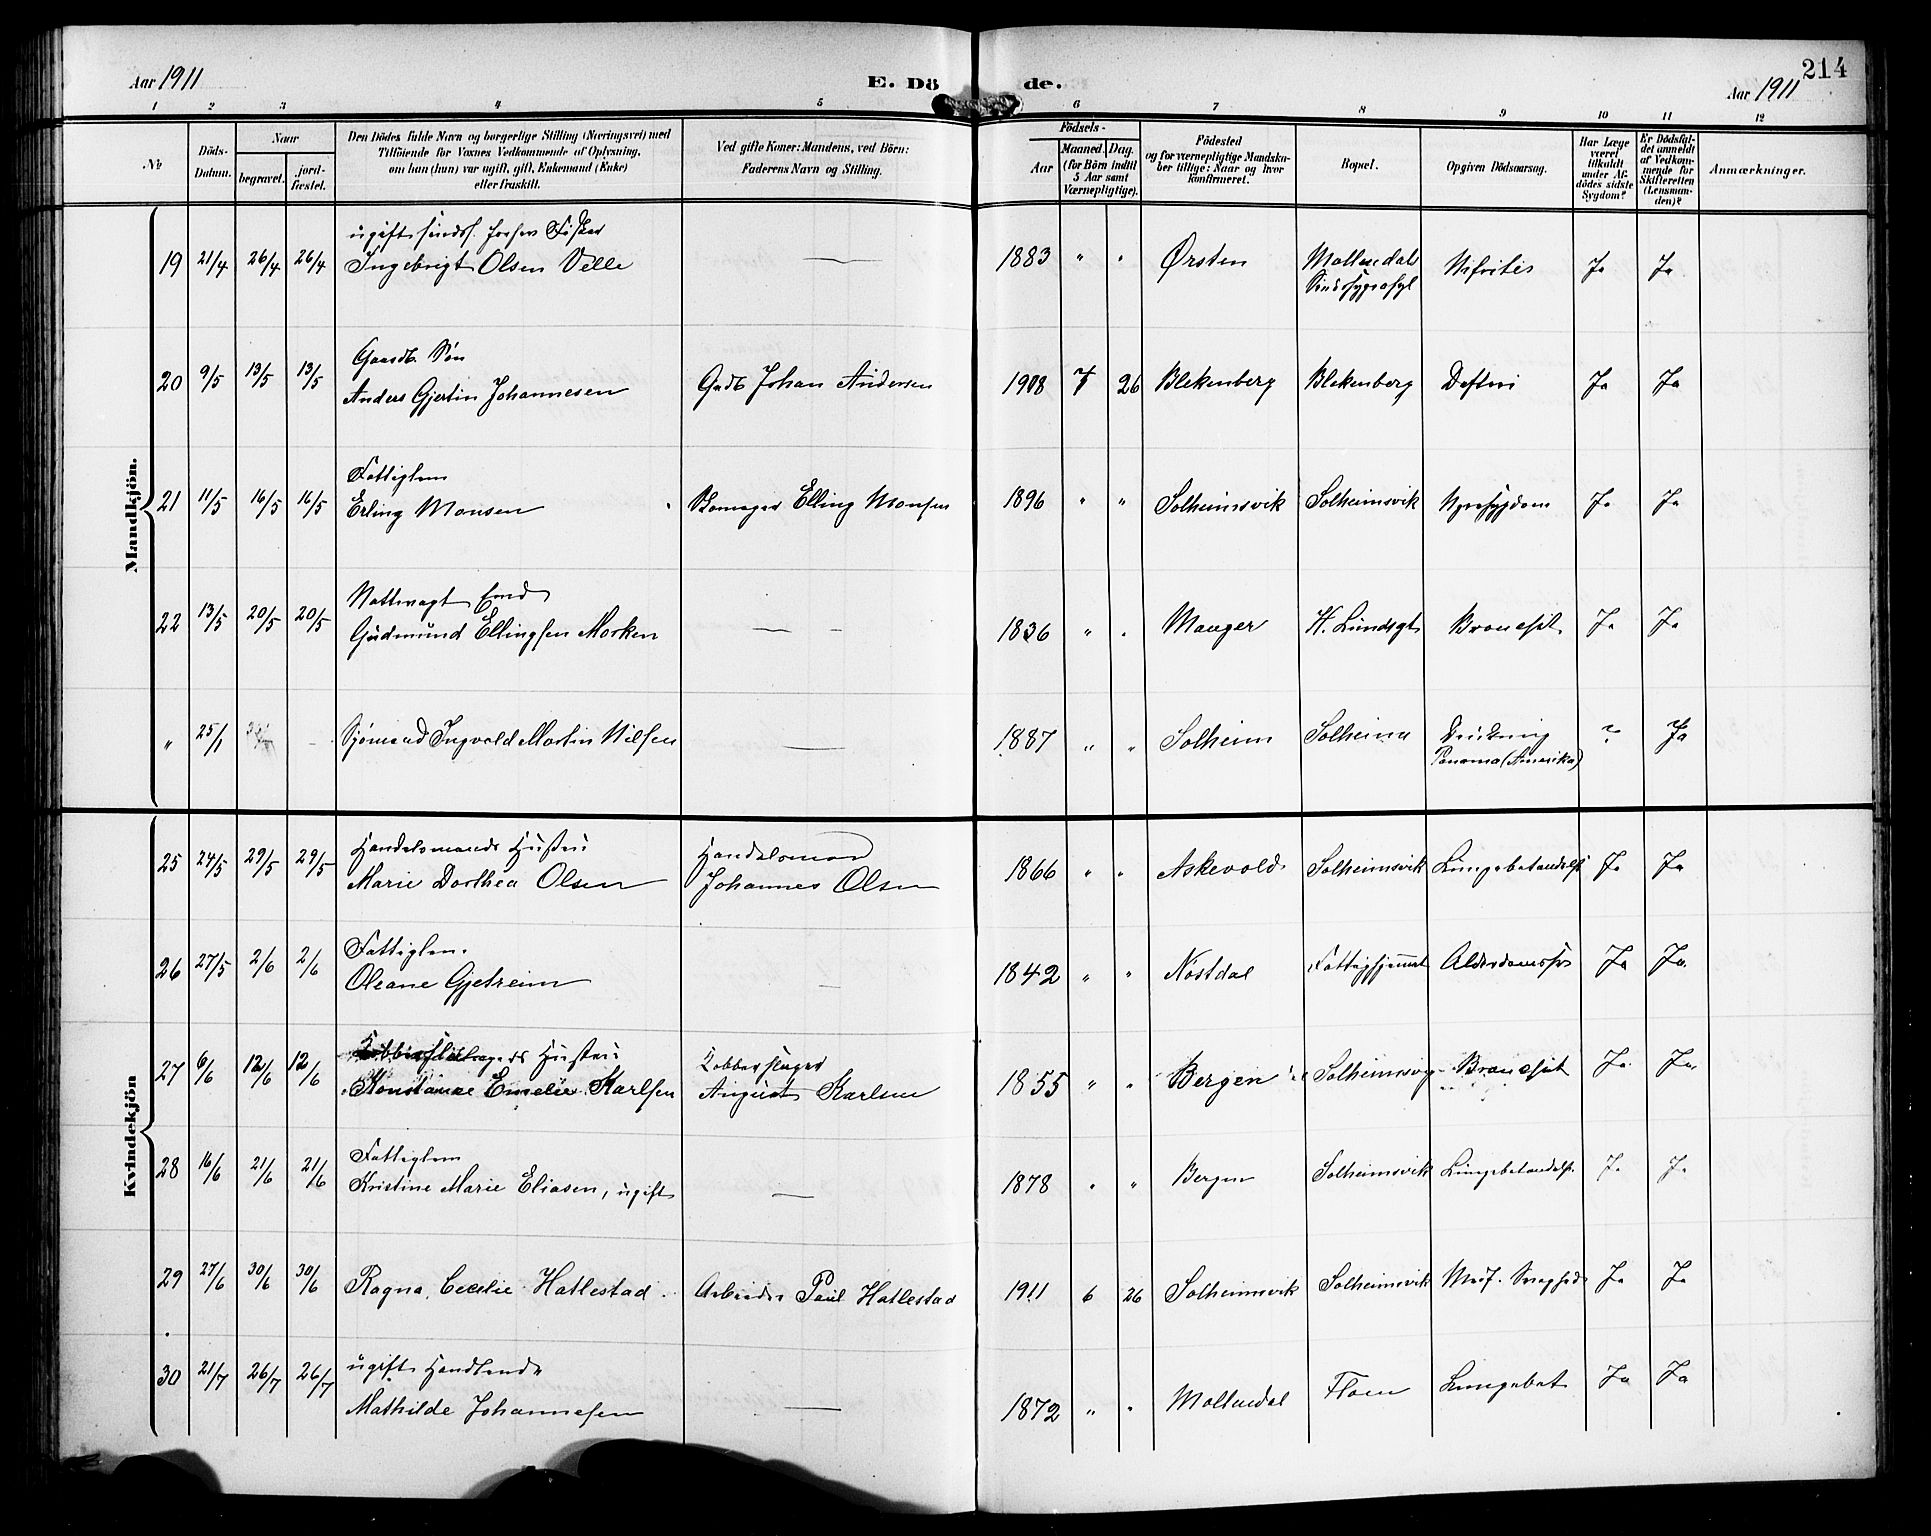 Aar 1911
E. Dö de.
214
Aar 1911
1 2 3 4 5 6 7 8 9 10 11 12
№
Döds-Datum.
Naar
begravet.
jord-fæstet.
Den Dödes fulde Navn og borgerlige Stilling (Næringsvei) med
Tilföiende for Voxnes Vedkommende af Oplysning,
om han (hun) var ugift, gift, Enkemand (Enke)
eller fraskilt.
Ved gifte Koner: Mandens, ved Börn:
Faderens Navn og Stilling.
Födsels-
Aar
Maaned. Dag.
(for Börn indtil
5 Aar samt
Værnepligtige).
Födested
og for værnepligtige Mandska-
ber tillige: Naar og hvor
konfirmeret.
Bopæl.
Opgiven Dödsaarsag.
Har Læge
været
tilkaldt
under Af-
dödes sidste
Sygdom?
Er Dödsfal-
det anmeldt
af Vedkom-
mende for
Skifteretten
(Lensman-
den)?
Anmærkninger.
Mandkjön.
ugift
19 21/4 26/4 26/4 Ingebrigt Olsen Velle — 1883 " " Ørsten Møllendal Nefritis Ja Ja
Sindssygeasyl
Gaardb. Søn
20 9/5 13/5 13/5 Anders Gjertin Johannesen Gadb Johan Andersen 1908 26 Blekenberg Blekenberg Difteri Ja Ja
Fattiglem
21 11/5 16/5 16/5 Erling Monsen Elling Monsen 1896 " " Solheimsvik Solheimsvik Nyresygdom Ja Ja
Nattvagt Emd
22 13/5 20/5 20/5 Gudmund Ellingsen Morken — - 1836 " " Manger H. Lundsgt Bronchit Ja Ja
" 25/1 - Sjømand Ingvald Martin Nilsen — 1887 " " Solheim Solheim Drukning ? Ja
Panama (Amerika)
Kvindekjön
Handelsmands Hustru Handelsmand
25 24/5 29/5 29/5 Marie Dorthea Olsen Johannes Olsen 1866 " " Askevold Solheimsvik Lungebetændelse Ja Ja
Fattiglem.
26 27/5 2/6 2/6 Oleane Gjetreim — 1842 " " Nostdal Fattighjemmet Alderdomssv Ja Ja.
Kobberslagers Hustru Kobberslager
27 6/6 12/6 12/6 Konstanse Emelie Karlsen August Karlsen 1855 " " Bergen Solheimsvig Bronchit Ja Ja.
Fattiglem
28 16/6 21/6 21/6 Kristine Marie Eliasen, ugift — 1878 " " Bergen Solheimsvik Lungebetændelse Ja Ja
29 27/6 30/6 30/6 Ragna Cecilie Hatlestad. Arbeider Paul Hatlestad 1911 6 26 Solheimsvik Solheimsvik Med. Svaghed Ja Ja
ugift Handlende
30 21/7 26/7 26/7 Mathilde Johannesen — 1872 " " Møllendal Floen Lungebet Ja Ja